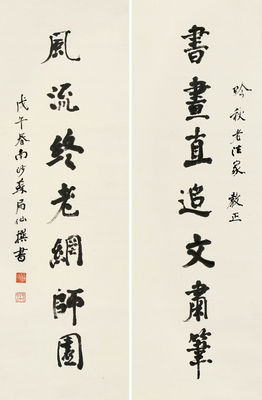 吟秋老法家 教正
書畫直追文肅筆
風流終老網師園
戊午春南沙蘇局仙撰書